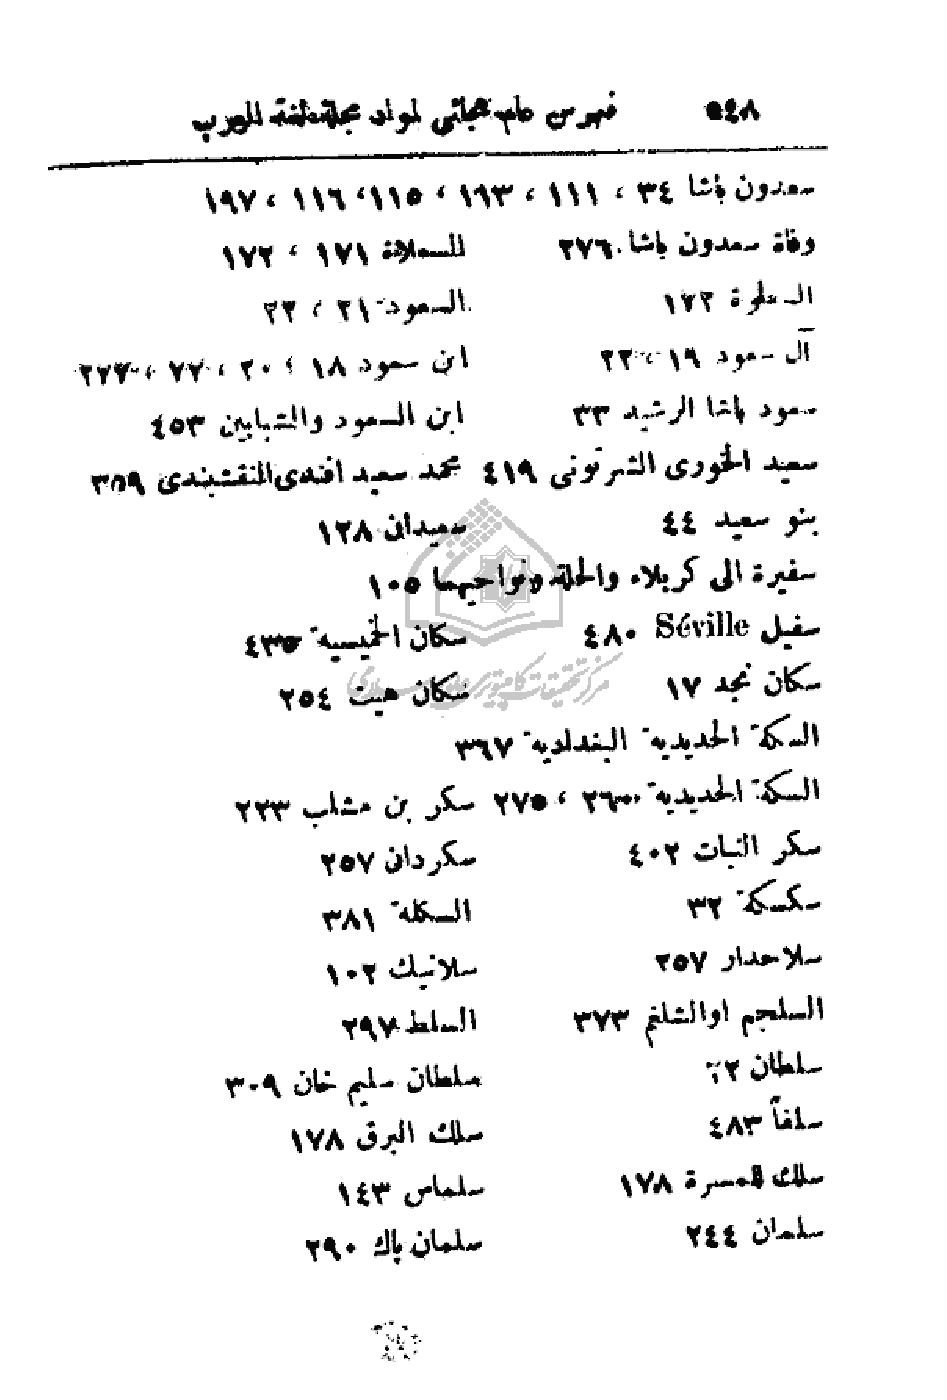 ٥٤٨ فهرس عام هجائي لمواد مجلة لغة العرب
سعدون باشا ٣٤ ، ١١١ ، ١٦٣ ، ١١٥، ١١٦ ، ١٩٧
وفاة سعدون باشا ٢٧٦ السعلاة ١٧١ ، ١٧٢
١٧٢ السعود ٢١ ، ٢٢
آل سعود ١٩ ، ٢٢ ابن سعود ١٨ ، ٢٠ ، ٧٧ ،
سعود باشا الرشيد ٣٣ ابن السعود والشبابين ٤٥٣
سعيد الخورى الشرتونى ٤١٩ محمد سعيد افندى النقشبندى ٣٥٩
بنو سعيد ٤٤ سعيدان ١٢٨
سفيرة الى كربلاء والحلة ونواحيهما ١٠٥
سفيل Séville ٤٨٠ سكان الخميسية ٤٣٥
سكان نجد ١٧ سكان هيت ٢٥٤
السكة الحديدية البغدادية ٣٦٧
السكة الحديدية ٢٦٠ ، ٢٧٥ سكر بن مشلب ٢٢٣
سكر النبات ٤٠٢ سكردان ٢٥٧
سكسكة ٣٢ السكلة ٣٨١
سلاحدار ٢٥٧ سلانيك ١٠٢
السلجم او الشلغم ٣٧٣ السلط ٢٩٧
سلطان سلطان سليم خان ٣٠٩
سلفاً ٤٨٣ سلك البرق ١٧٨
سلك المسرة ١٧٨ سلماس ١٤٣
سلمان ٢٤٤ سلمان باك ٢٩٠